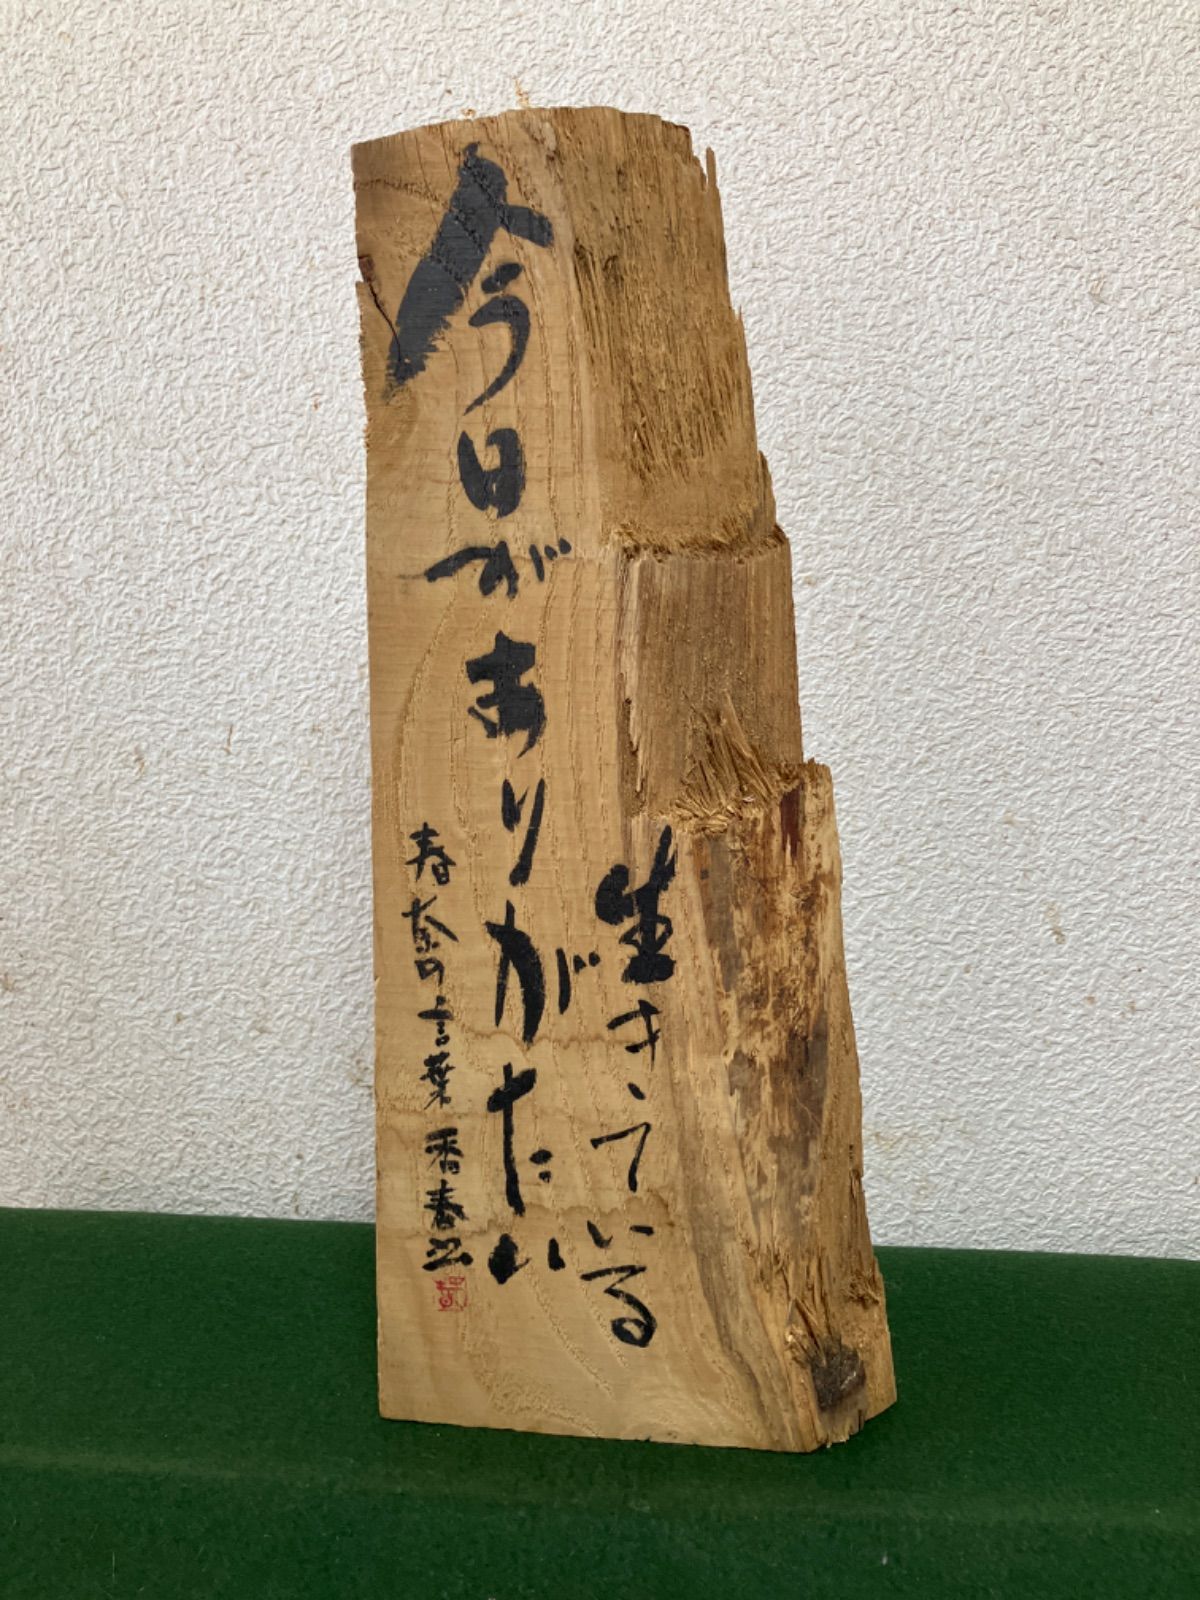 生きている
今日がありがたい
寿奈の言葉 香春書